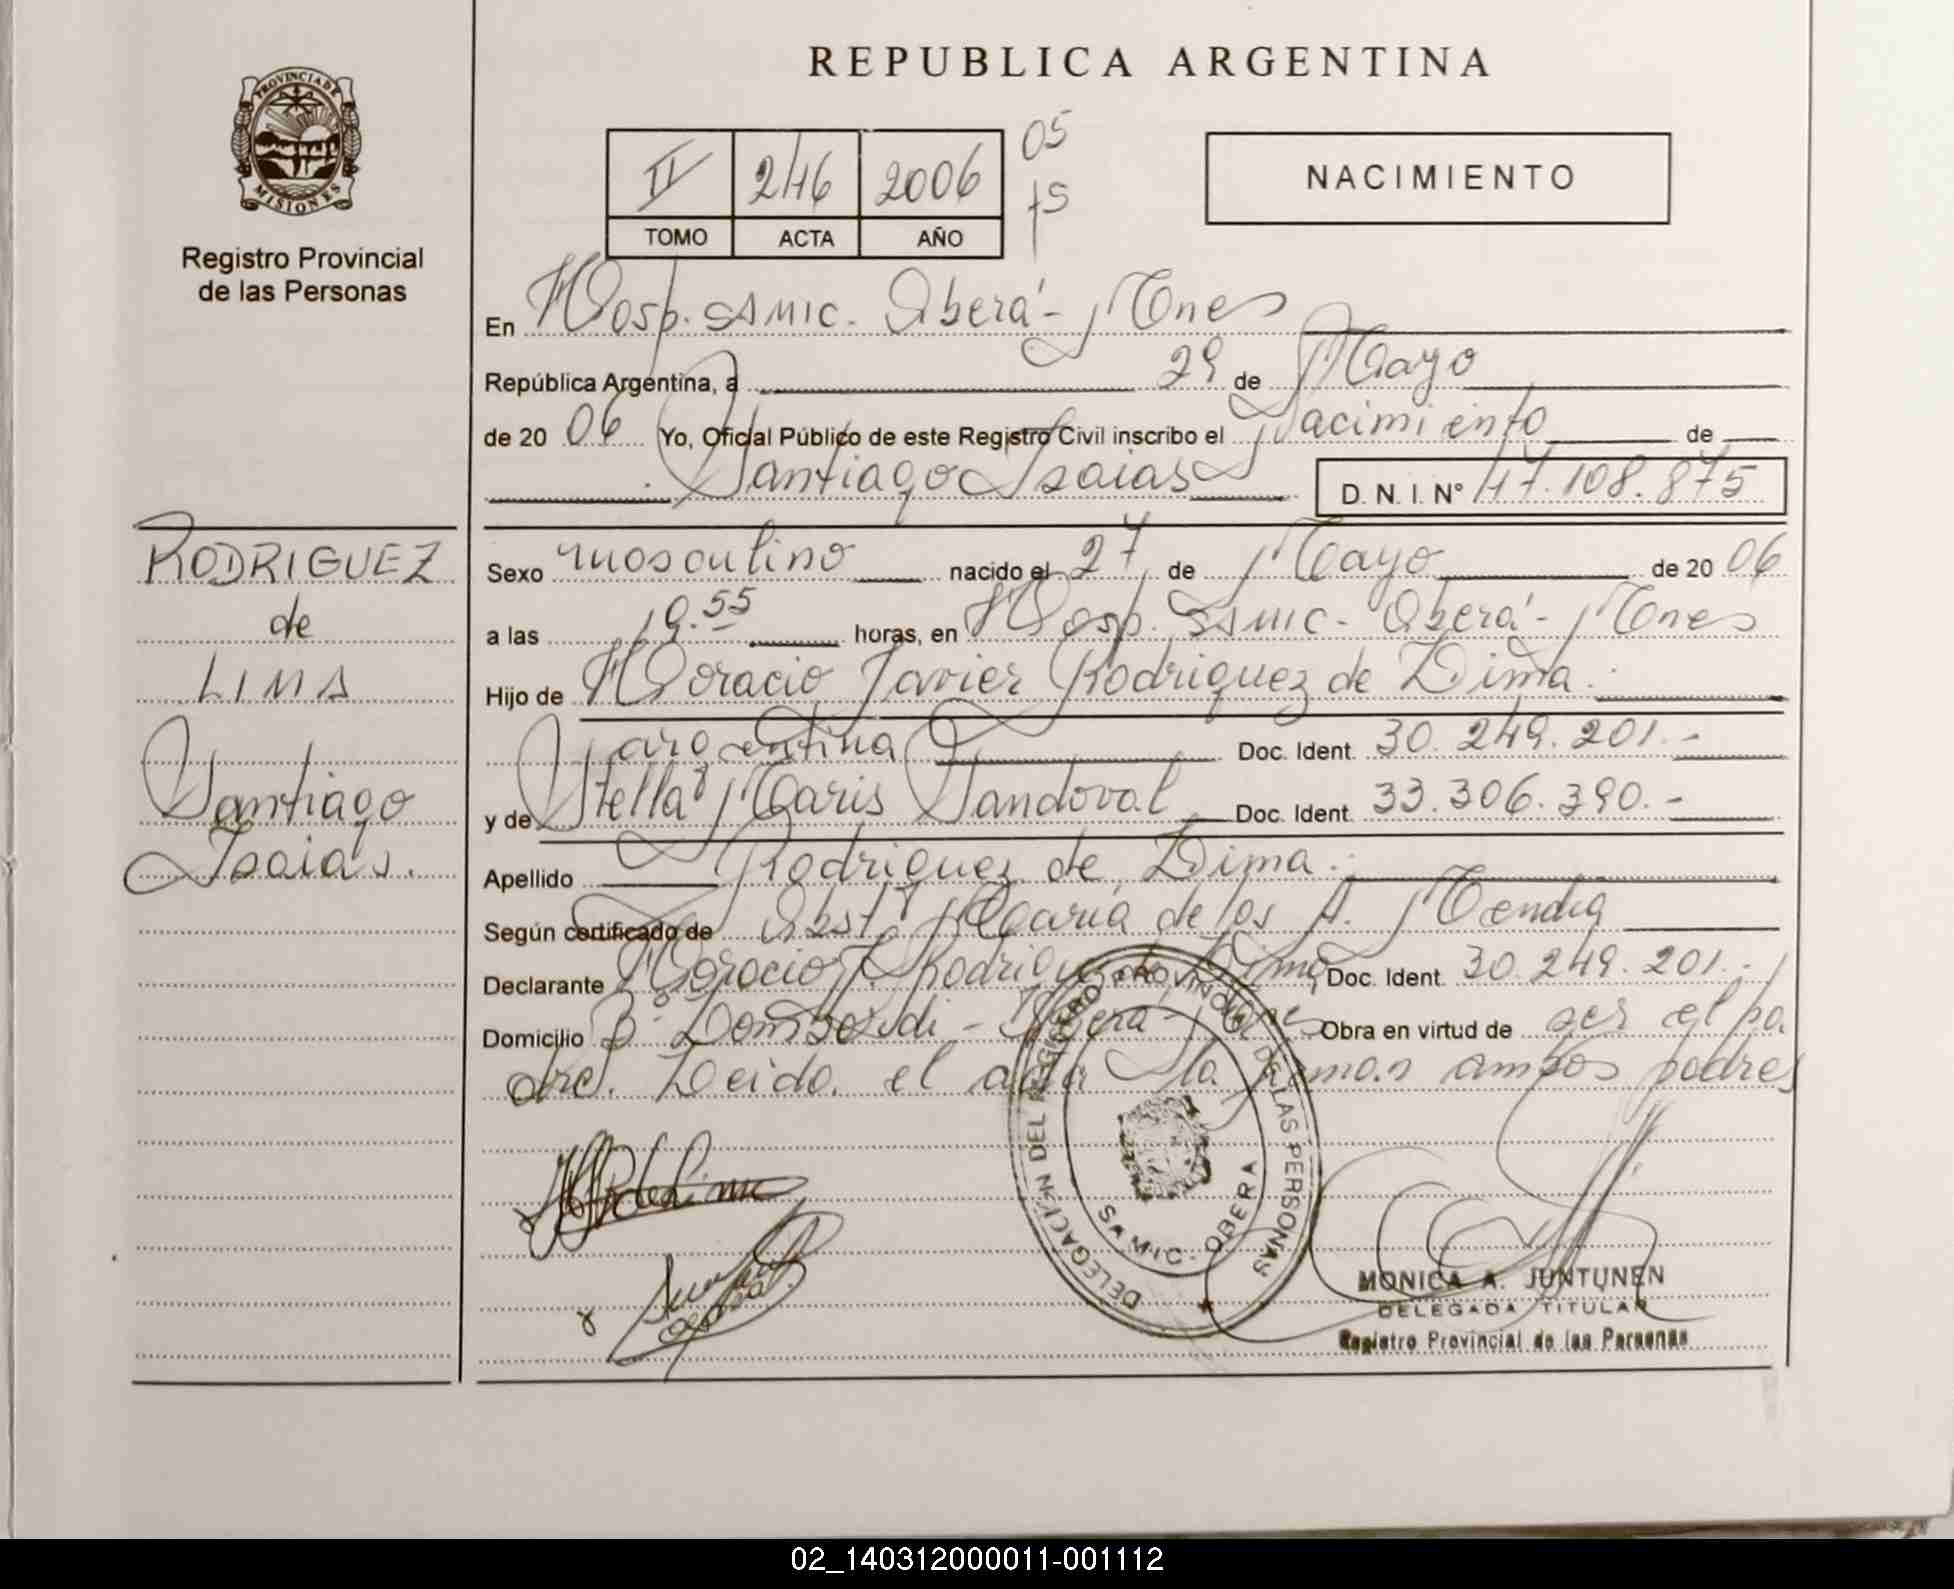 PROVINCIA DE
MISIONES
Registro Provincial
de las Personas
RODRIGUEZ
de
LIMA
Santiago
Isaias.
REPUBLICA ARGENTINA
II 246 2006
TOMO ACTA AÑO
05
75
NACIMIENTO
En Hosp. SAMIC. Oberá - Mnes
República Argentina, a 29 de Mayo
de 2006 Yo, Oficial Público de este Registro Civil inscribo el Nacimiento de
Santiago Isaias D. N. I. Nº 47.108.875
Sexo masculino nacido el 27 de Mayo de 2006
a las 19.55 horas, en Hosp. SAMIC - Oberá - Mnes
Hijo de Horacio Javier Rodriguez de Lima.
argentina Doc. Ident. 30.249.201.-
y de Stella Maris Sandoval Doc. Ident. 33.306.390.-
Apellido Rodriguez de Lima.
Según certificado de Obstª María de los A.
Declarante Horacio J. Rodriguez de Lima Doc. Ident. 30.249.201.-
Domicilio Bº - Oberá - Mnes Obra en virtud de ser el pa
dre. Leida el acta la firman ambos padres
DELEGACION DEL REGISTRO PROVINCIAL DE LAS PERSONAS
SAMIC - OBERA
MONICA A. JUNTUNEN
DELEGADA TITULAR
Registro Provincial de las Personas
02_140312000011-001112